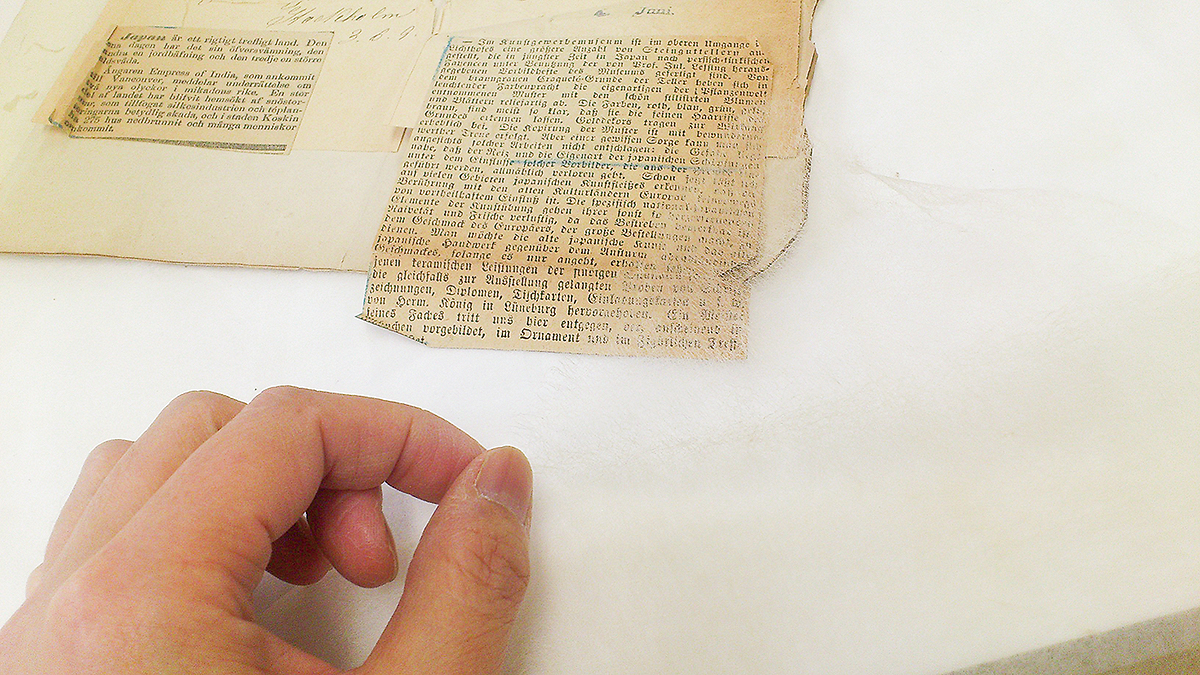 Stockholm
3. 6. 9.
Juni.
Japan är ett rigtigt trefligt land. Den
ena dagen har det sin öfversvämning, den
andra en jordbäfning och den tredje en större
eldsvåda.
Ångaren Empress of India, som ankommit
till Vancouver, meddelar underrättelse om
nya olyckor i mikadons rike. En stor
del af landet har blifvit hemsökt af snöstor-
mar, som tillfogat silkesindustrien och téplan-
betydlig skada, och i staden Koskin
276 hus nedbrunnit och många menniskor
omkommit.
— Im Kunstgewerbemuseum ist im oberen Umgange
Lichthofes eine größere Anzahl von Steinguttellern
gestellt, die in jüngster Zeit in Japan nach persisch-türkischen
unter Benutzung der von Prof. Jul. Lessing heraus-
gegebenen Vorbildhefte des Museums gefertigt sind. Von
dem blaungrünen Craquelé-Grunde der Teller heben sich in
leuchtender Farbenpracht die eigenartigen der Pflanzenwelt
entnommenen Muster mit den schön stilisirten Blumen
und Blättern reliefartig ab. Die Farben, roth, blau, grün,
braun, sind meist so klar, daß sie die feinen Haarrisse
Grundes erkennen lassen. Golddekors tragen zur
erheblich bei. Die Kopirung der Muster ist mit
werther Treue erfolgt. Aber einer gewissen Sorge kann man
angesichts solcher Arbeiten nicht entschlagen: die
habe, daß der Reiz und die Eigenart der japanischen
unter dem Einfluß solcher Vorbilder, die aus der
geführt werden, allmählich verloren geht. Schon
auf vielen Gebieten japanischen Kunstfleißes
Berührung mit den alten Kulturländern Europas
von vortheilhaftem Einfluß ist. Die spezifisch
Elemente der Kunstübung gehen ihrer sonst so
Naivetät und Frische verlustig, da das Bestreben
dem Geschmack des Europäers, der große Bestellungen
dienen. Man möchte die alte japanische Kunst
japanische Handwerk gegenüber dem Ansturm
Geschmackes, solange es nur angeht, erhalten
jenen keramischen Leistungen der
die gleichfalls zur Ausstellung gelangten Proben von
zeichnungen, Diplomen, Tischkarten, Einladungskarten u. s. w.
von Herm. König in Lüneburg hervorgehoben. Ein Meister
seines Faches tritt uns hier entgegen, der, anscheinend in
vorgebildet, im Ornament und im Figürlichen